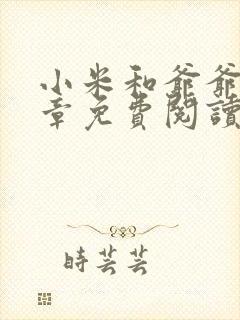 小米和爺爺
章免費閱讀
時芸芸